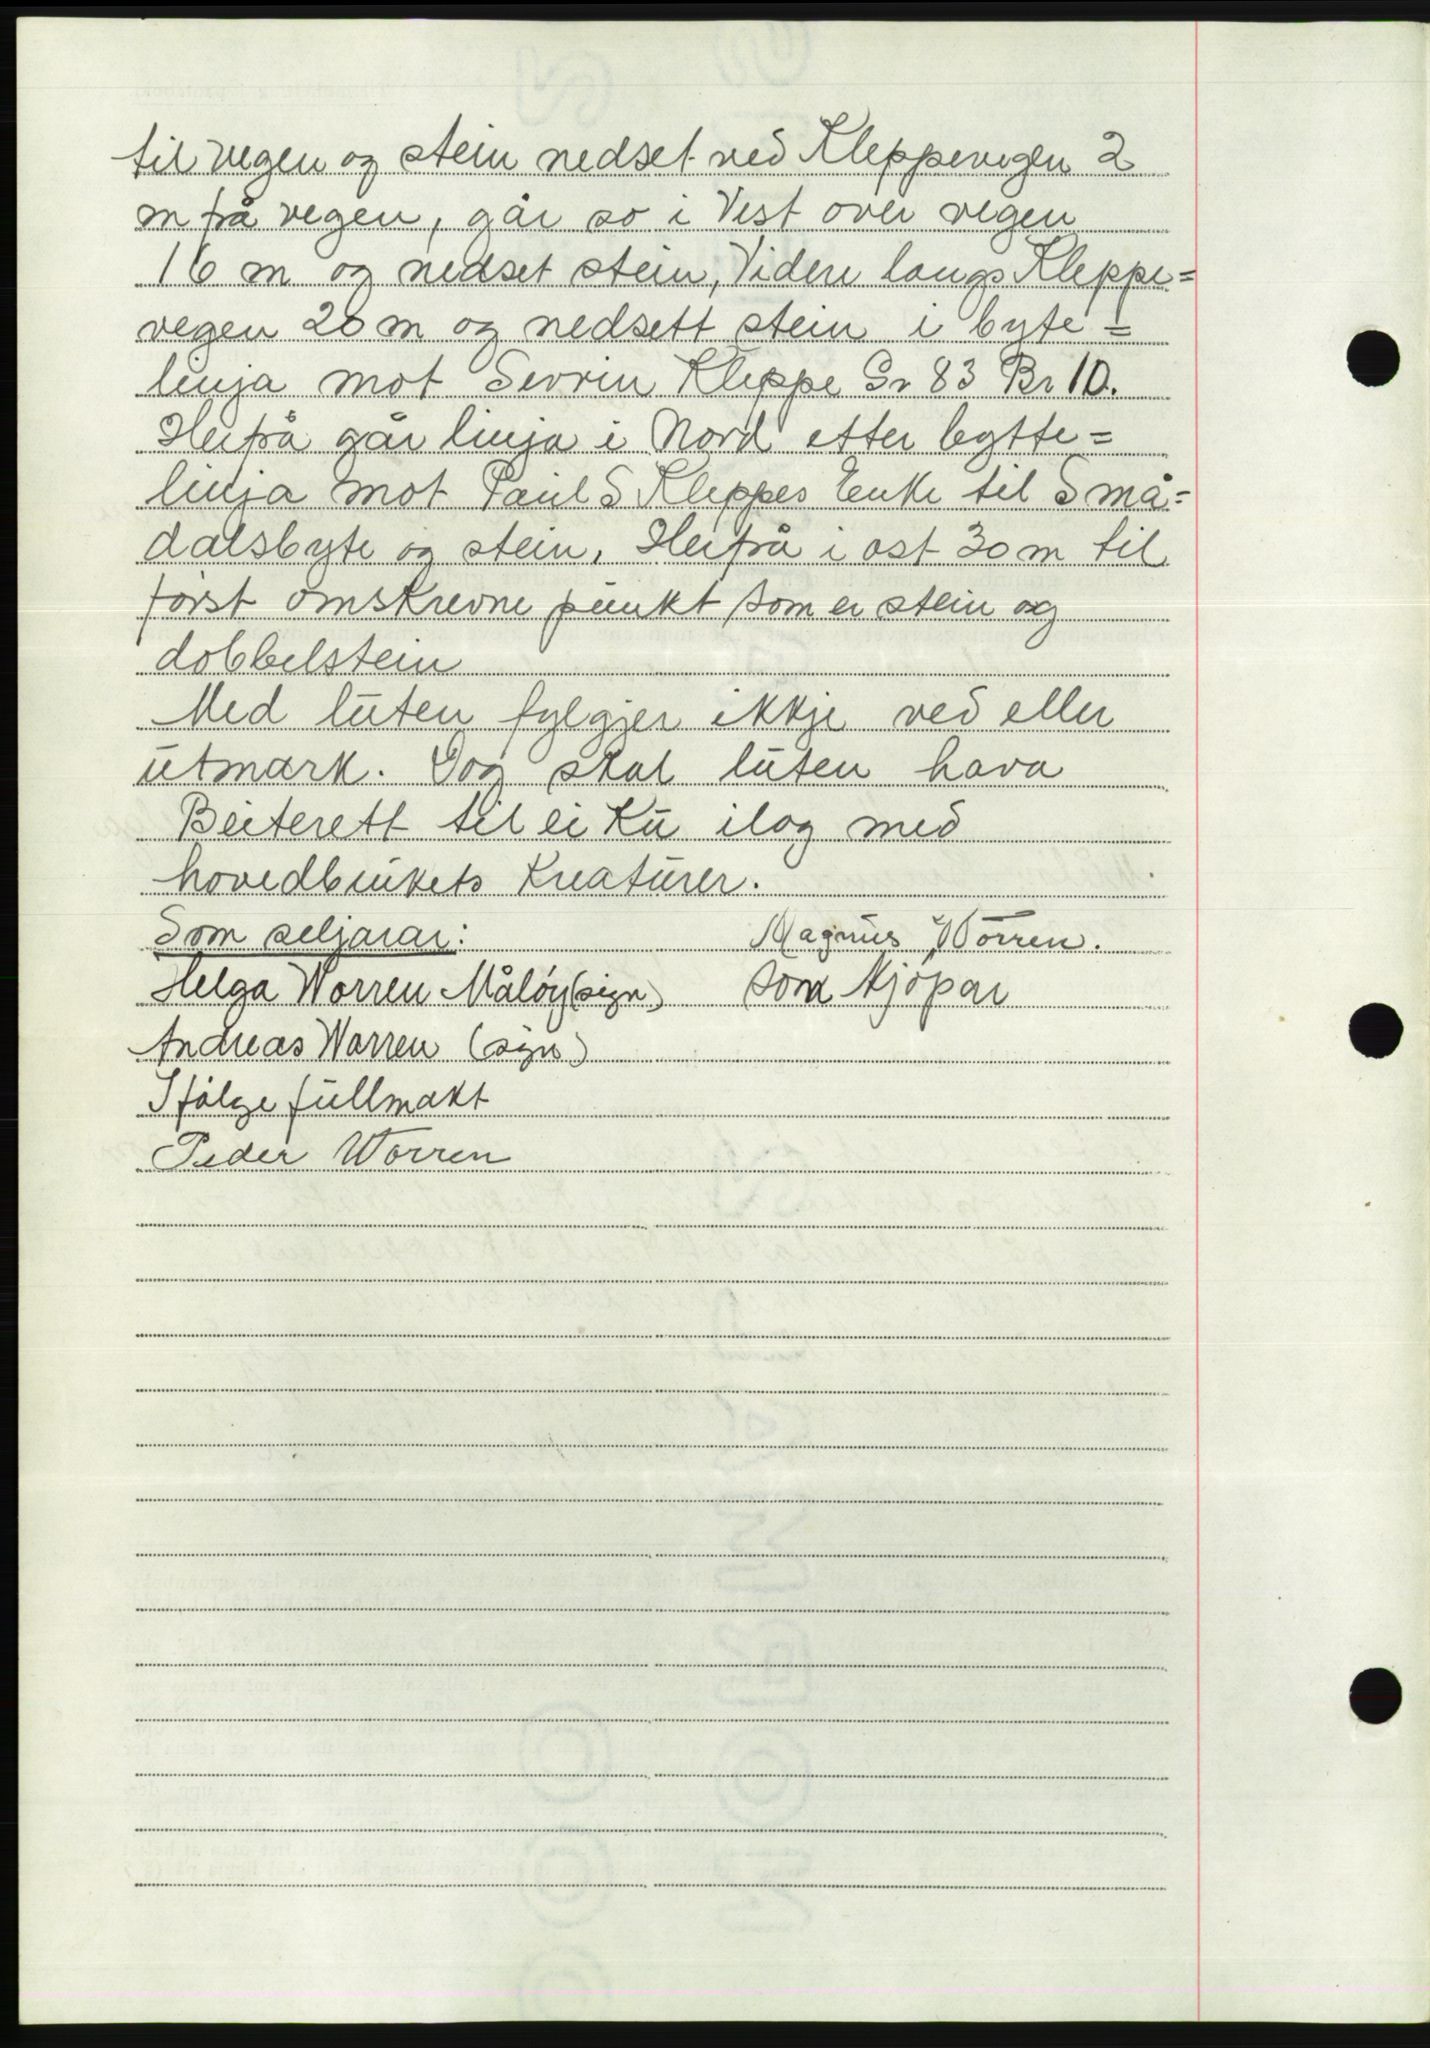 til vegen og stein nedset ved Kleppevegen 2
m frå vegen, går so i Vest over vegen
16 m og nedset stein, Videre langs Kleppe=
vegen 20 m og nedsett stein i byte=
linja mot Sevrin Kleppe Gr 83 Br 10.
Herfrå går linja i Nord etter bytte=
linja mot Paul S Kleppes Enke til Små=
dalsbyte og stein. Herfrå i ost 30 m til
først omskrevne punkt som er stein og
dobbelstein
Med luten fylgjer ikkje ved eller
utmark. Dog skal luten hava
Beiterett til ei Ku ilag med
hovedbrukets Kreaturer.
Som seljarar: Magnus Worren.
Helga Worren Måløy (sign) som kjøpar
Andreas Worren (sign)
Ifølge fullmakt
Peder Worren